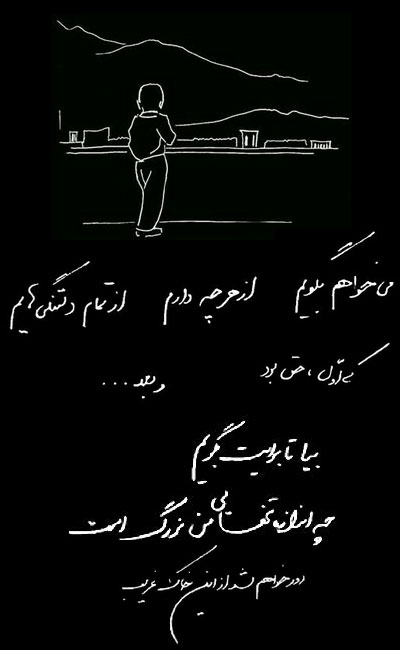 می خواهم بگویم از هر چه دارم از تمام دلتنگی هایم
اوّل ، حق بود و بعد ...
بیا تا برایت بگویم
چه اندازه تنهائی من بزرگ است
دور خواهم شد از این خاک غریب